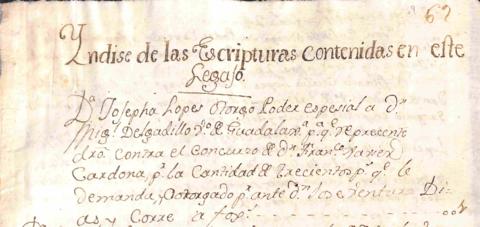 62
Yndise de las Escripturas contenidas en este
Legajo.
Dª Josepha Lopes Otorgó Poder espesial a Dn
Migl Delgadillo Vº de Guadalaxª pª qe represente
dro contra el Concurzo de Dn Franco Xavier
Cardona, pr la Cantidad de Trecientos ps qe le
demanda, y otorgado pr ante Dn Jose Ventura Di-
as y Corre a fox